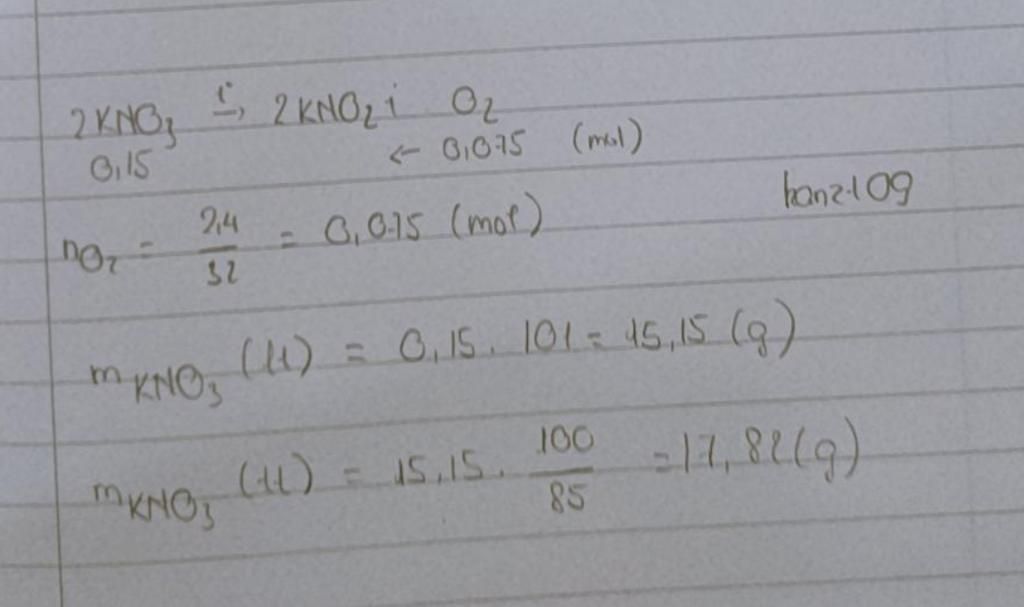 2KNO₃ t°→ 2KNO₂ + O₂
0,15 ← 0,075 (mol)
hanz109
nO₂ = 2,4/32 = 0,075 (mol)
mKNO₃ (lt) = 0,15. 101 = 15,15 (g)
mKNO₃ (tt) = 15,15. 100/85 = 17,82 (g)